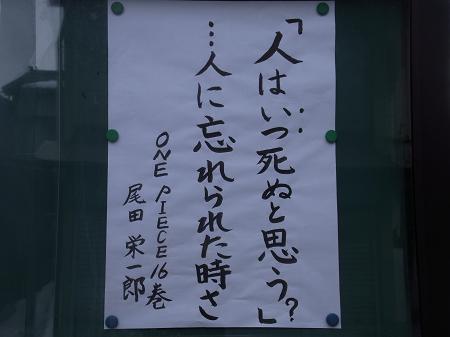 「人はいつ死ぬと思う?」
…人に忘れられた時さ
ONE PIECE 16巻
尾田 栄一郎